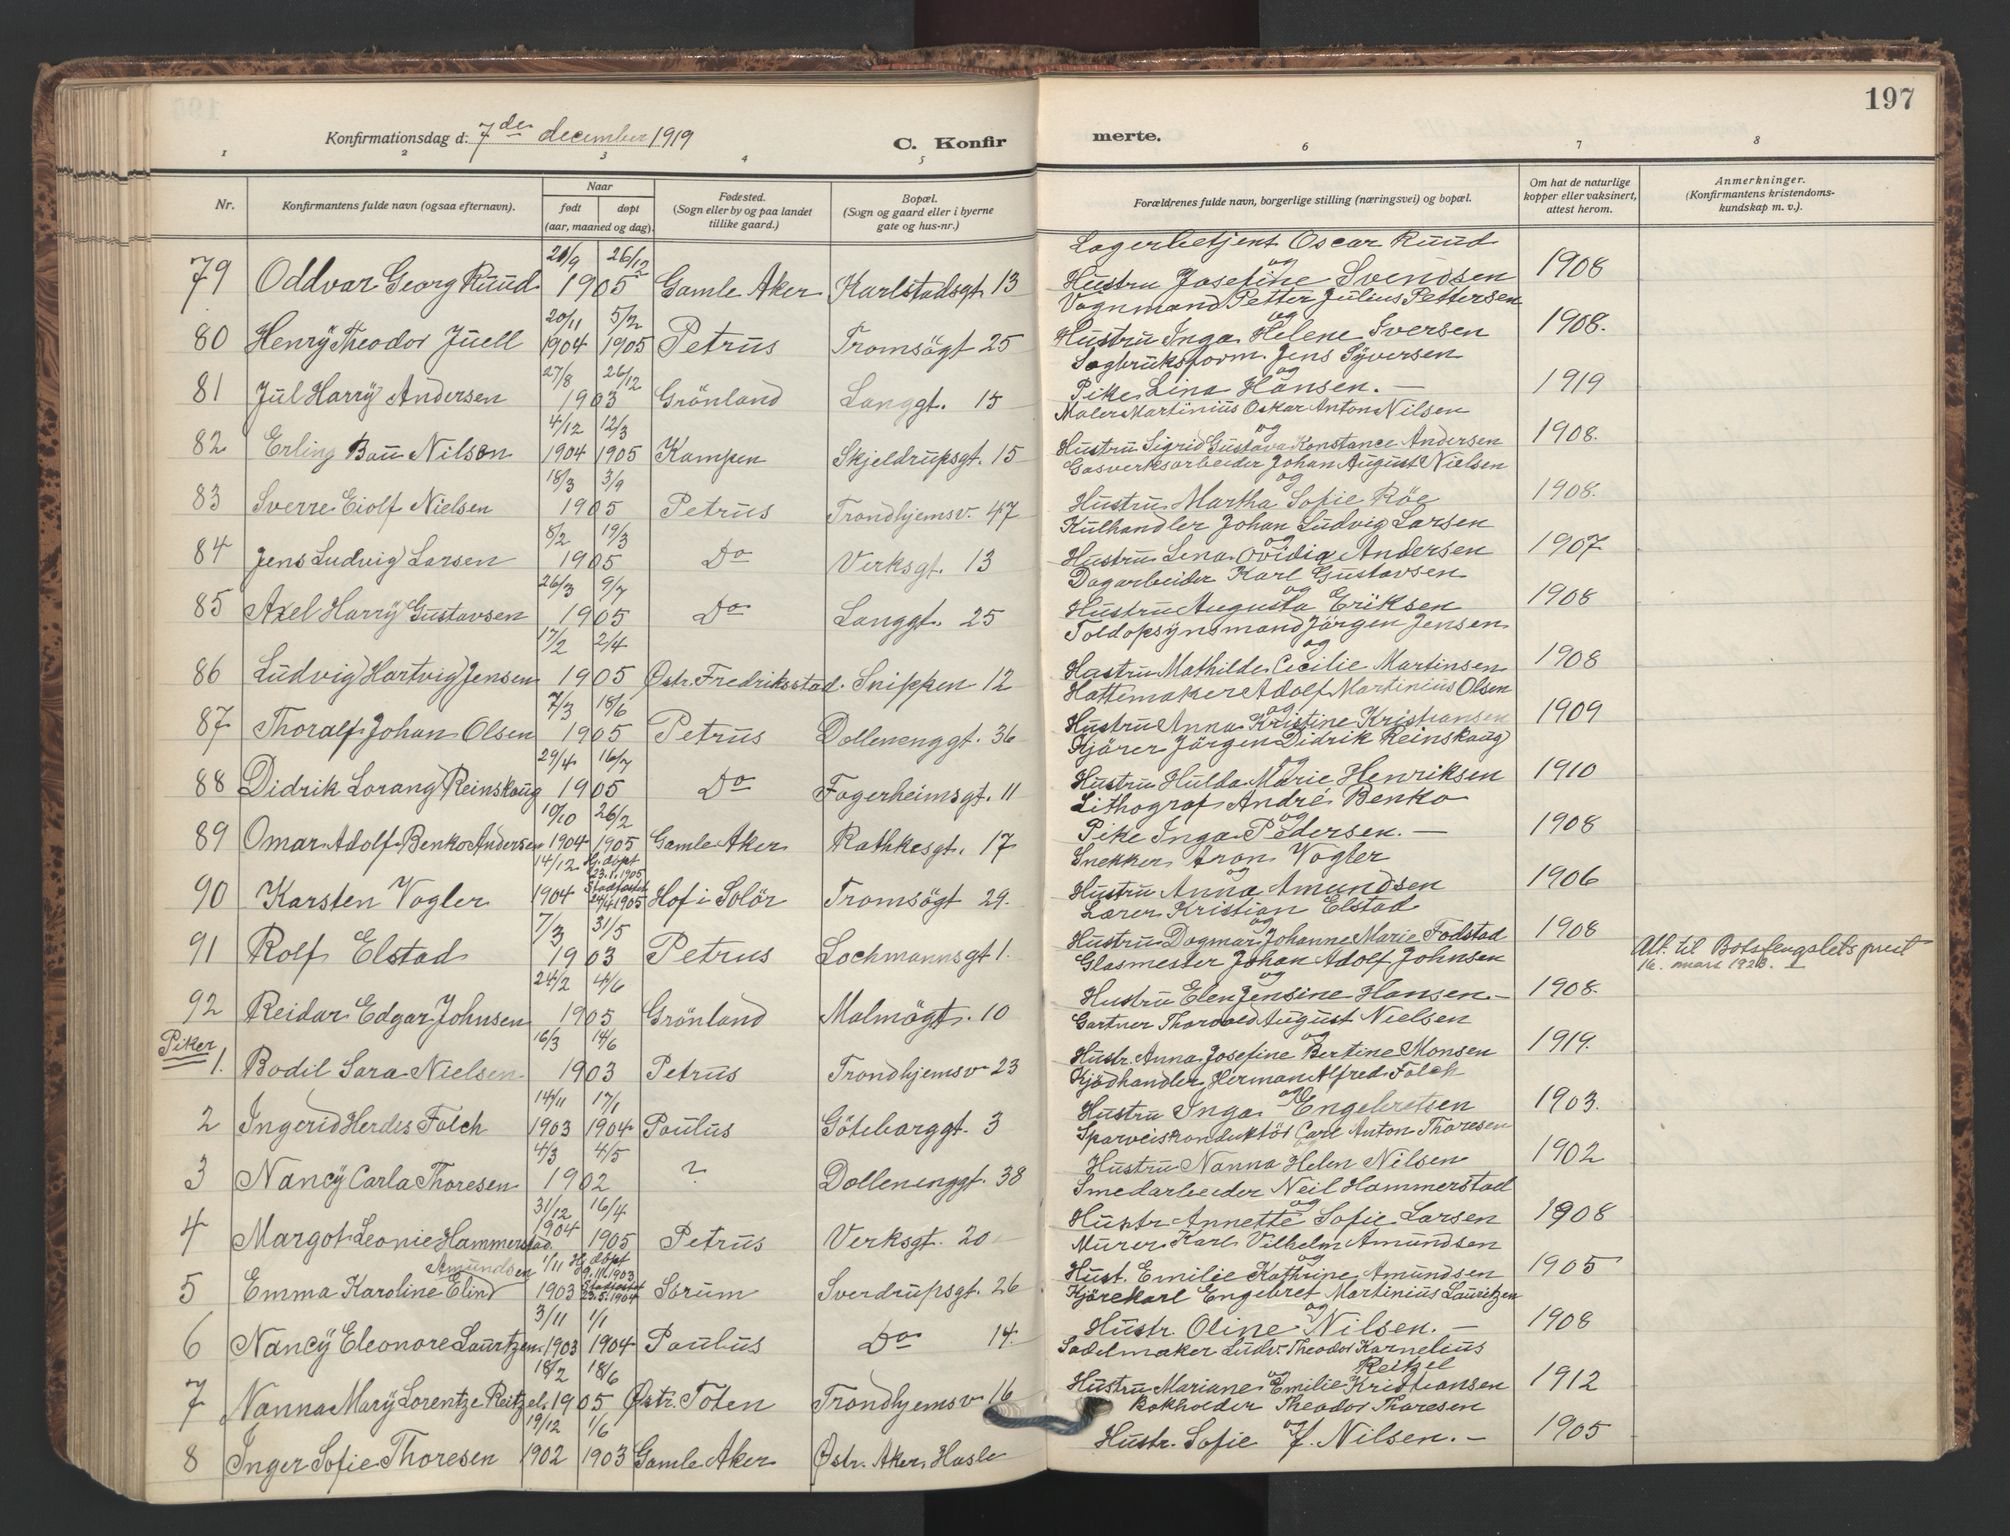 197
Konfirmationsdag d. 7de december 1919
C. Konfirmerte.
1 2 3 4 5 6 7 8
Nr.
Konfirmantens fulde navn (ogsaa efternavn).
Naar
født døpt
(aar, maaned og dag).
Fødested.
(Sogn eller by og paa landet
tillike gaard.)
Bopæl.
(Sogn og gaard eller i byerne
gate og hus-nr.)
Forældrenes fulde navn, borgerlige stilling (næringsvei) og bopæl.
Om hat de naturlige
kopper eller vaksinert,
attest herom.
Anmerkninger.
(Konfirmantens kristendoms-
kundskap m. v.).
21/9 26/12 Lagerbetjent Oscar Ruud
79 Oddvar Georg Ruud 1905 Gamle Aker Karlstadsgt. 13 og Hustru Josefine Svendsen 1908
20/11 5/2 Vognmand Petter Julius Pettersen
80 Henrÿ Theodor Juell 1904 1905 Petrus Tromsögt 25 og Hustru Inga Helene Iversen 1908.
27/8 26/12 Sagbruksform. Jens Sÿversen
81 Jul Harrÿ Andersen 1903 Grönland Langgt. 15 og Pike Lina Hansen. — 1919
4/12 12/3 Maler Martinius Oskar Anton Nilsen
82 Erling Bau Nilsen 1904 1905 Kampen Skjeldrupsgt. 15 og Hustru Sigrid Gustava Konstance Andersen 1908.
18/3 3/9 Gasverksarbeider Johan August Nielsen
83 Sverre Eiolf Nielsen 1905 Petrus Trondhjemsv. 47 og Hustru Martha Sofie Röe 1908.
8/2 19/3 Kulhandler Johan Ludvig Larsen
84 Jens Ludvig Larsen 1905 Do Verksgt. 13 og Hustru Lena Ovidia Andersen 1907
26/3 9/7 Dagarbeider Karl Gustavsen
85 Axel Harrÿ Gustavsen 1905 Do Langgt. 25 og Hustru Augusta Eriksen 1908
17/2 2/4 Toldopsÿnsmand Jörgen Jensen
86 Ludvig Hartvig Jensen 1905 Östr. Fredriksstad. Snippen 12 og Hustru Mathilde Cecilie Martinsen 1908
7/3 18/6 Hattemaker Adolf Martinius Olsen
87 Thoralf Johan Olsen 1905 Petrus Dollenenggt. 36 og Hustru Anna Kristine Kristiansen 1909
29/4 16/7 Kjörer Jörgen Didrik Reinskaug
88 Didrik Lorang Reinskaug 1905 Do Fagerheimsgt. 11 og Hustru Hulda Marie Henriksen 1910
10/10 26/2 Lithograf André Benko
89 Omar Adolf Benko Andersen 1904 1905 Gamle Aker Rathkesgt. 17 og Pike Inga Pedersen. — 1908
14/12 Hj. döpt 23.1.1905 Snekker Aron Vogler
90 Karsten Vogler 1904 Stadfästet 24/4 1905 Hof i Solör Tromsögt 29. og Hustru Anna Amundsen 1906
7/3 31/5 Lærer Kristian Elstad
91 Rolf Elstad 1903 Petrus Lochmannsgt 1. og Hustru Dagmar Johanne Marie Fodstad 1908 Att. til Botsfengslets prest
16. mars 1928.
24/2 4/6 Glasmester Johan Adolf Johnsen
92 Reidar Edgar Johnsen 1905 Grönland Malmögt. 10 og Hustru Elen Jensine Hansen. — 1908
Piker
16/3 14/6 Gartner Thorvald August Nielsen
1. Bodil Sara Nielsen 1903 Petrus Trondhjemsv 23 og Hustr. Anna Josefine Bertine Monsen 1919.
14/11 17/1 Kjödhandler Herman Alfred Falch
2 Ingerid Herdis Falch 1903 1904 Paulus Göteborggt. 3 og Hustru Inga Engebretsen 1903.
4/3 4/5 Sparveiskonduktör Carl Anton Thoresen
3 Nancÿ Carla Thoresen 1902 ? Dollenenggt. 38 Hustru Nanna Helen Nilsen 1902
31/12 16/4 Smedarbeider Neil Hammerstad
4 Margot Leonie Hammerstad. 1904 1905 Petrus Verksgt. 20 og Hustr Annette Sofie Larsen 1908
Amundsen 1/11 Hj. döpt 9.11.1903 Murer Karl Vilhelm Amundsen
5 Emma Karoline Elind 1903 Stadfästet 23.5.1904 Sörum Sverdrupsgt. 26 og Hust. Emilie Kathrine Amundsen 1905
3/11 1/1 Kjörekarl Engebret Martinius Lauritzen
6 Nancÿ Eleonore Lauritzen 1903 1904 Paulus Do 14. og Hustr. Oline Nilsen. — 1908
18/2 18/6 Sadelmaker Ludv. Theodor Kornelius Reitzel
7 Nanna Marÿ Lorentze Reitzel. 1905 Östr. Toten Trondhjemsv 16 og Hustru Mariane Emilie Kristiansen 1912
19/12 1/6 Bokholder Theodor Thoresen
8 Inger Sofie Thoresen 1902 1903 Gamle Aker Östr. Aker, Hasle og Hustr. Sofie f. Nilsen. — 1905